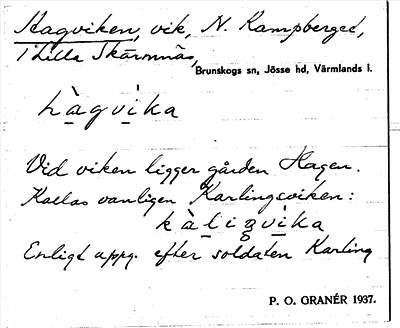 Hagviken, vik, N. Kampberget,
i Lilla Skärmnäs,
Brunskogs sn, Jösse hd, Värmlands l.
hàgvika
Vid viken ligger gården Hagen.
Kallas vanligen Karlingsviken:
Enligt uppg. efter soldaten Karling
P. O. GRANÉR 1937.